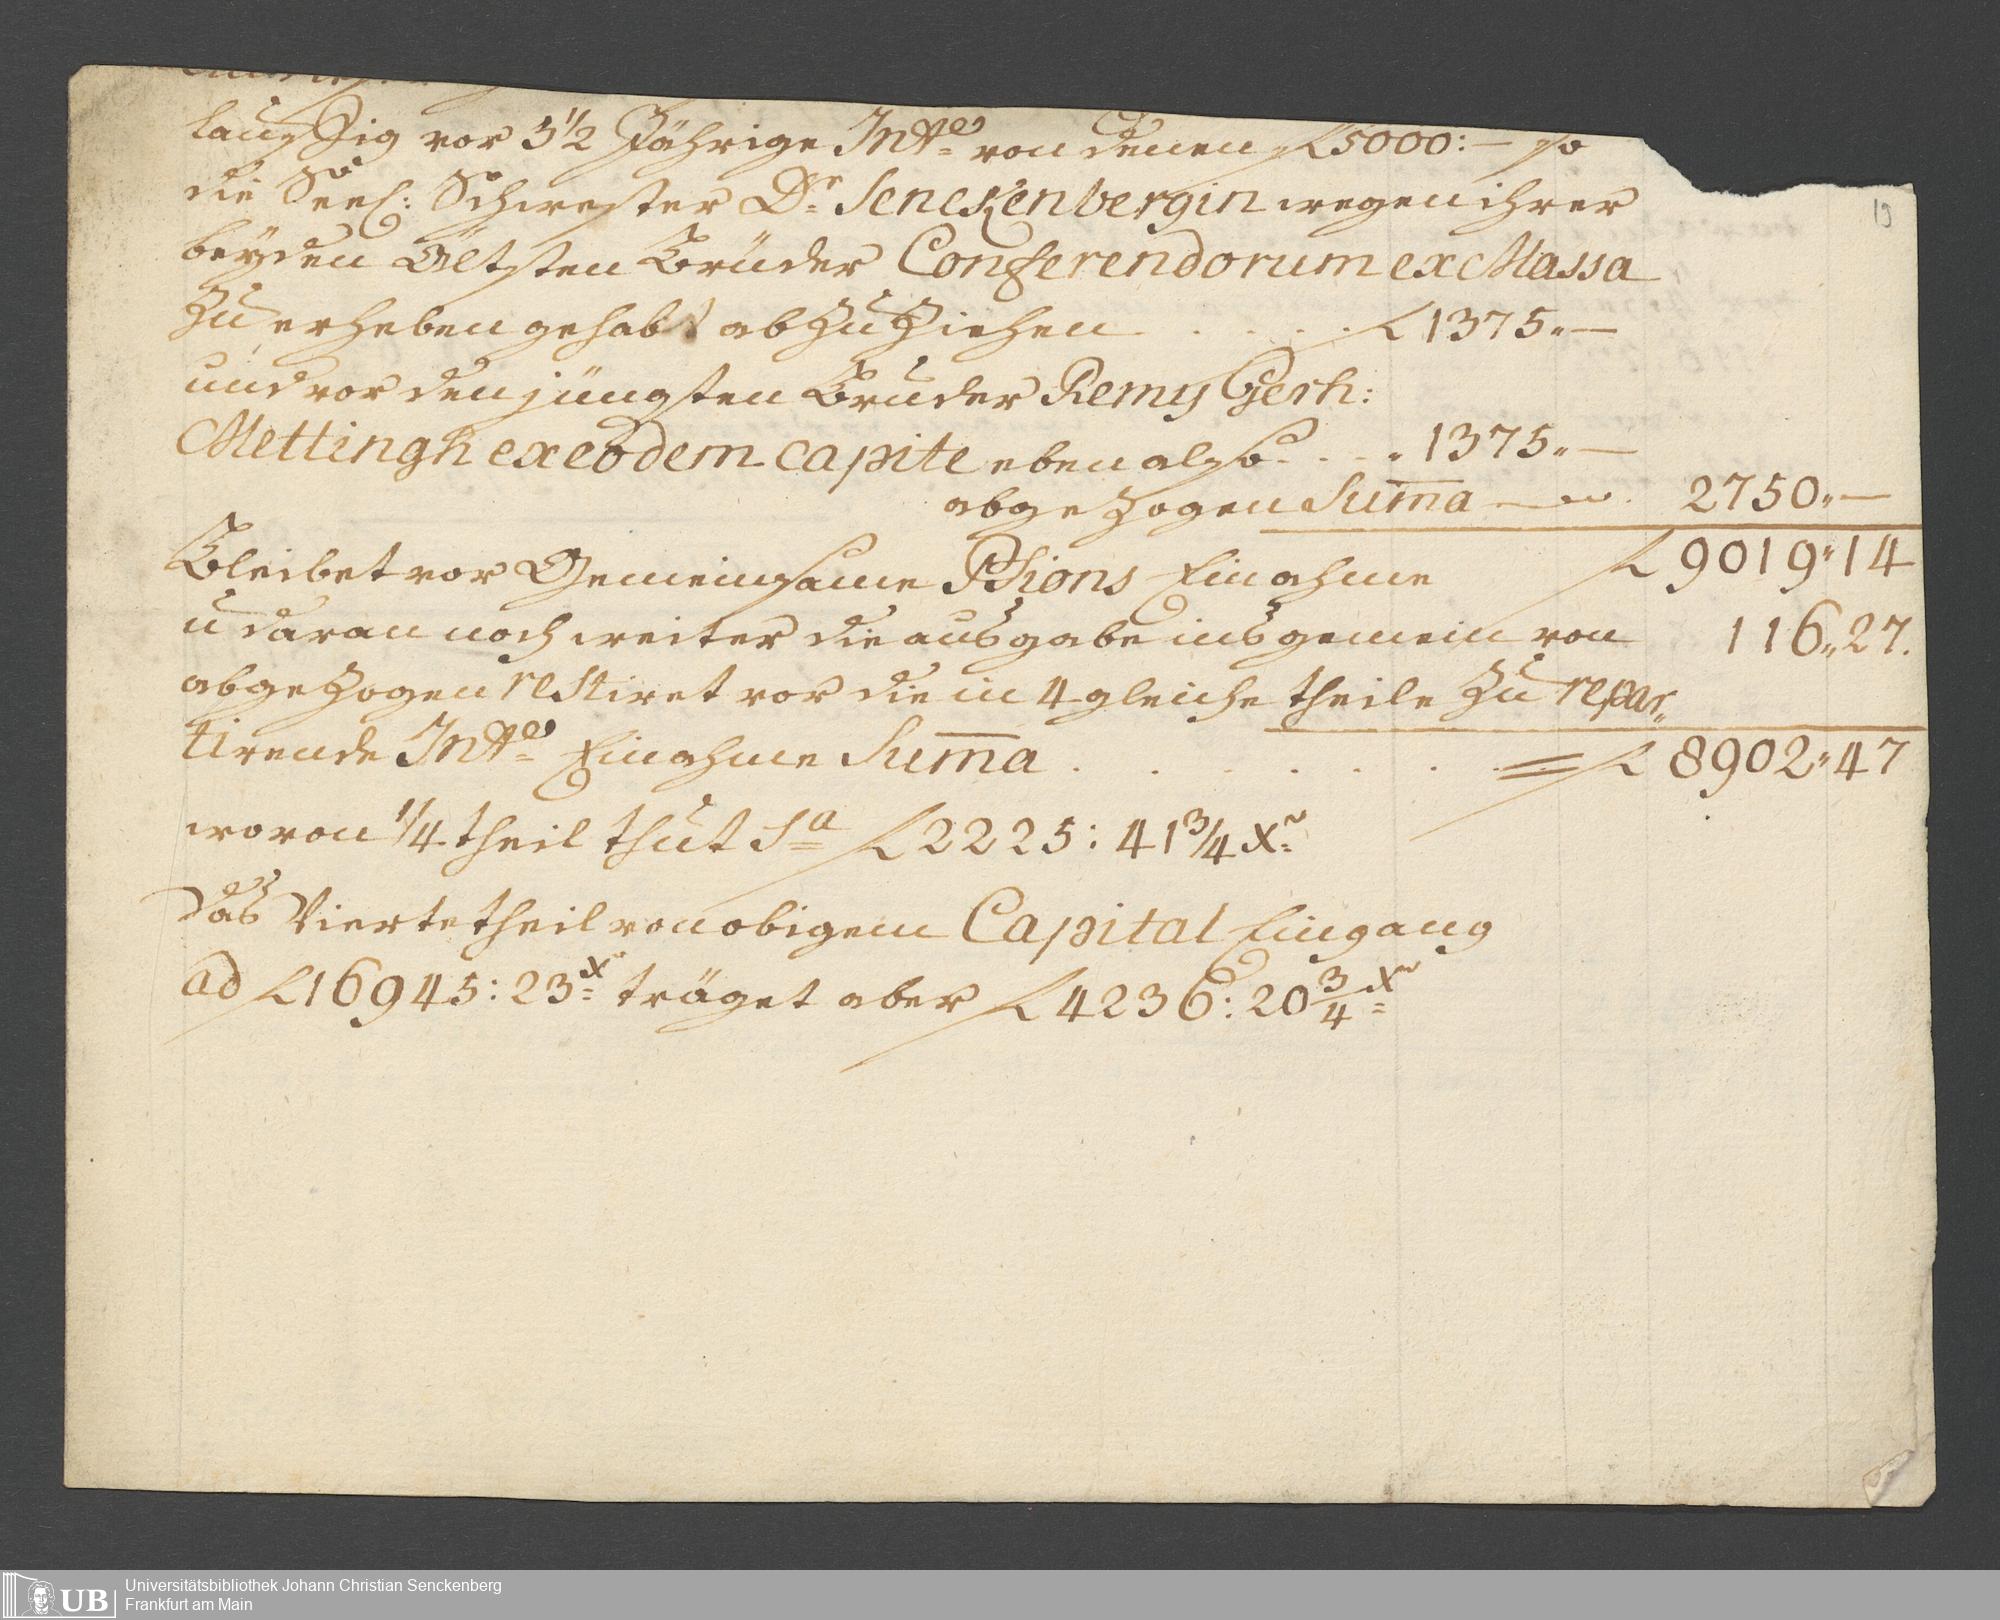 vor 5 1/2 Jährige Int.e von denen f 5000:— so
die Seel: Schwester Dr. Senckenbergin wegen ihrer
beyden Ältsten Brüder Conferendorum ex Massa
zu erheben gehabt abzuziehen . . . . f 1375„—
und vor den jüngsten Bruder Remy Gerh:
Mettingh ex eodem capite eben also . . „ 1375„—
abgezogen Suma̅ — 2750„—
Bleibet vor Gemeinsame Einahme f 9019„14
u daran noch weiter die ausgabe ins gemein von 116„27.
abgezogen restiret vor die in 4 gleiche theile zu repar„
tirende Int.e Einahme Suma̅ . . . . . . . = f 8902„47
wovon 1/4 theil thut Sa f 2225: 41 3/4 Xr.
das Vierte theil von obigem Capital Eingang
ad f 16945: 23 X träget aber f 4236: 20 3/4 Xr
19
UB
Universitätsbibliothek Johann Christian Senckenberg
Frankfurt am Main